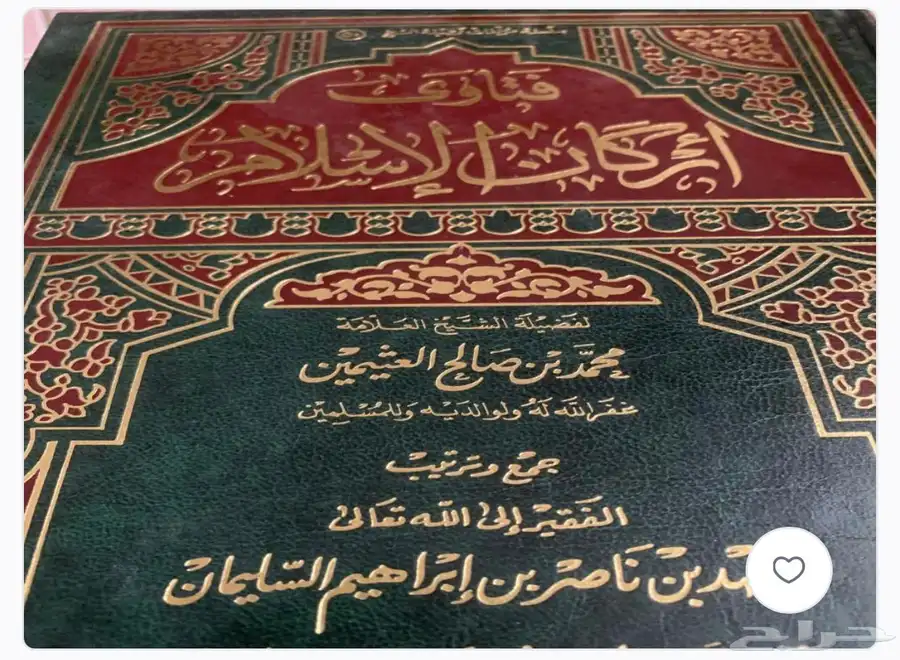 سلسلة مؤلفات فضيلة الشيخ
فتاوى
أركان الإسلام
لفضيلة الشيخ العلامة
محمد بن صالح العثيمين
غفر الله له ولوالديه وللمسلمين
جمع وترتيب
الفقير إلى الله تعالى
بن ناصر بن إبراهيم السليمان
حراج